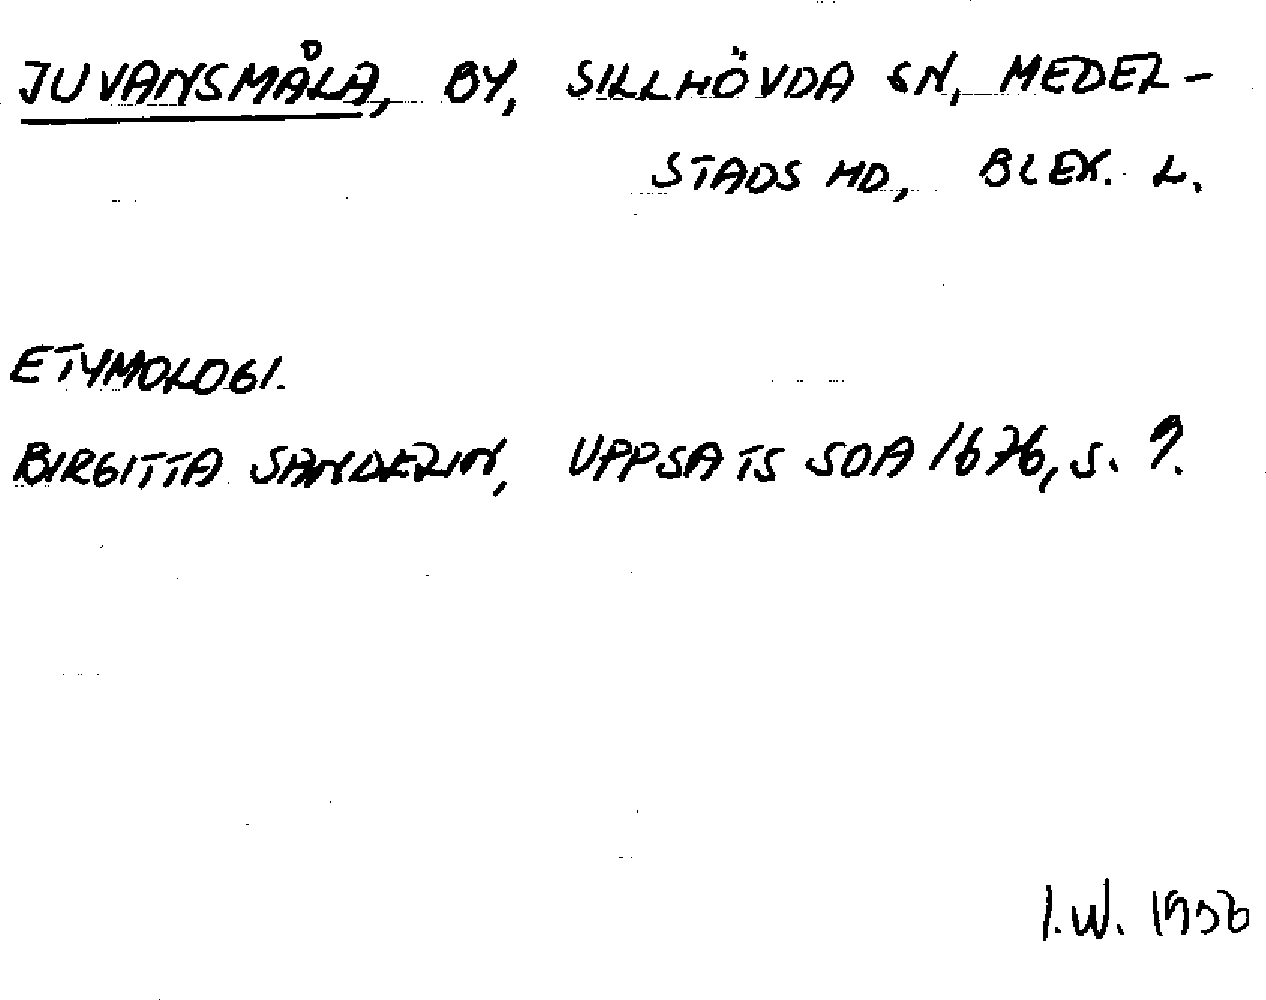 JUVANSMÅLA, BY, SILLHÖVDA SN, MEDEL-
STADS HD, BLEK. L.
ETYMOLOGI.
BIRGITTA SANDELIN, UPPSATS SOA 1676, S. 9.
I.W.